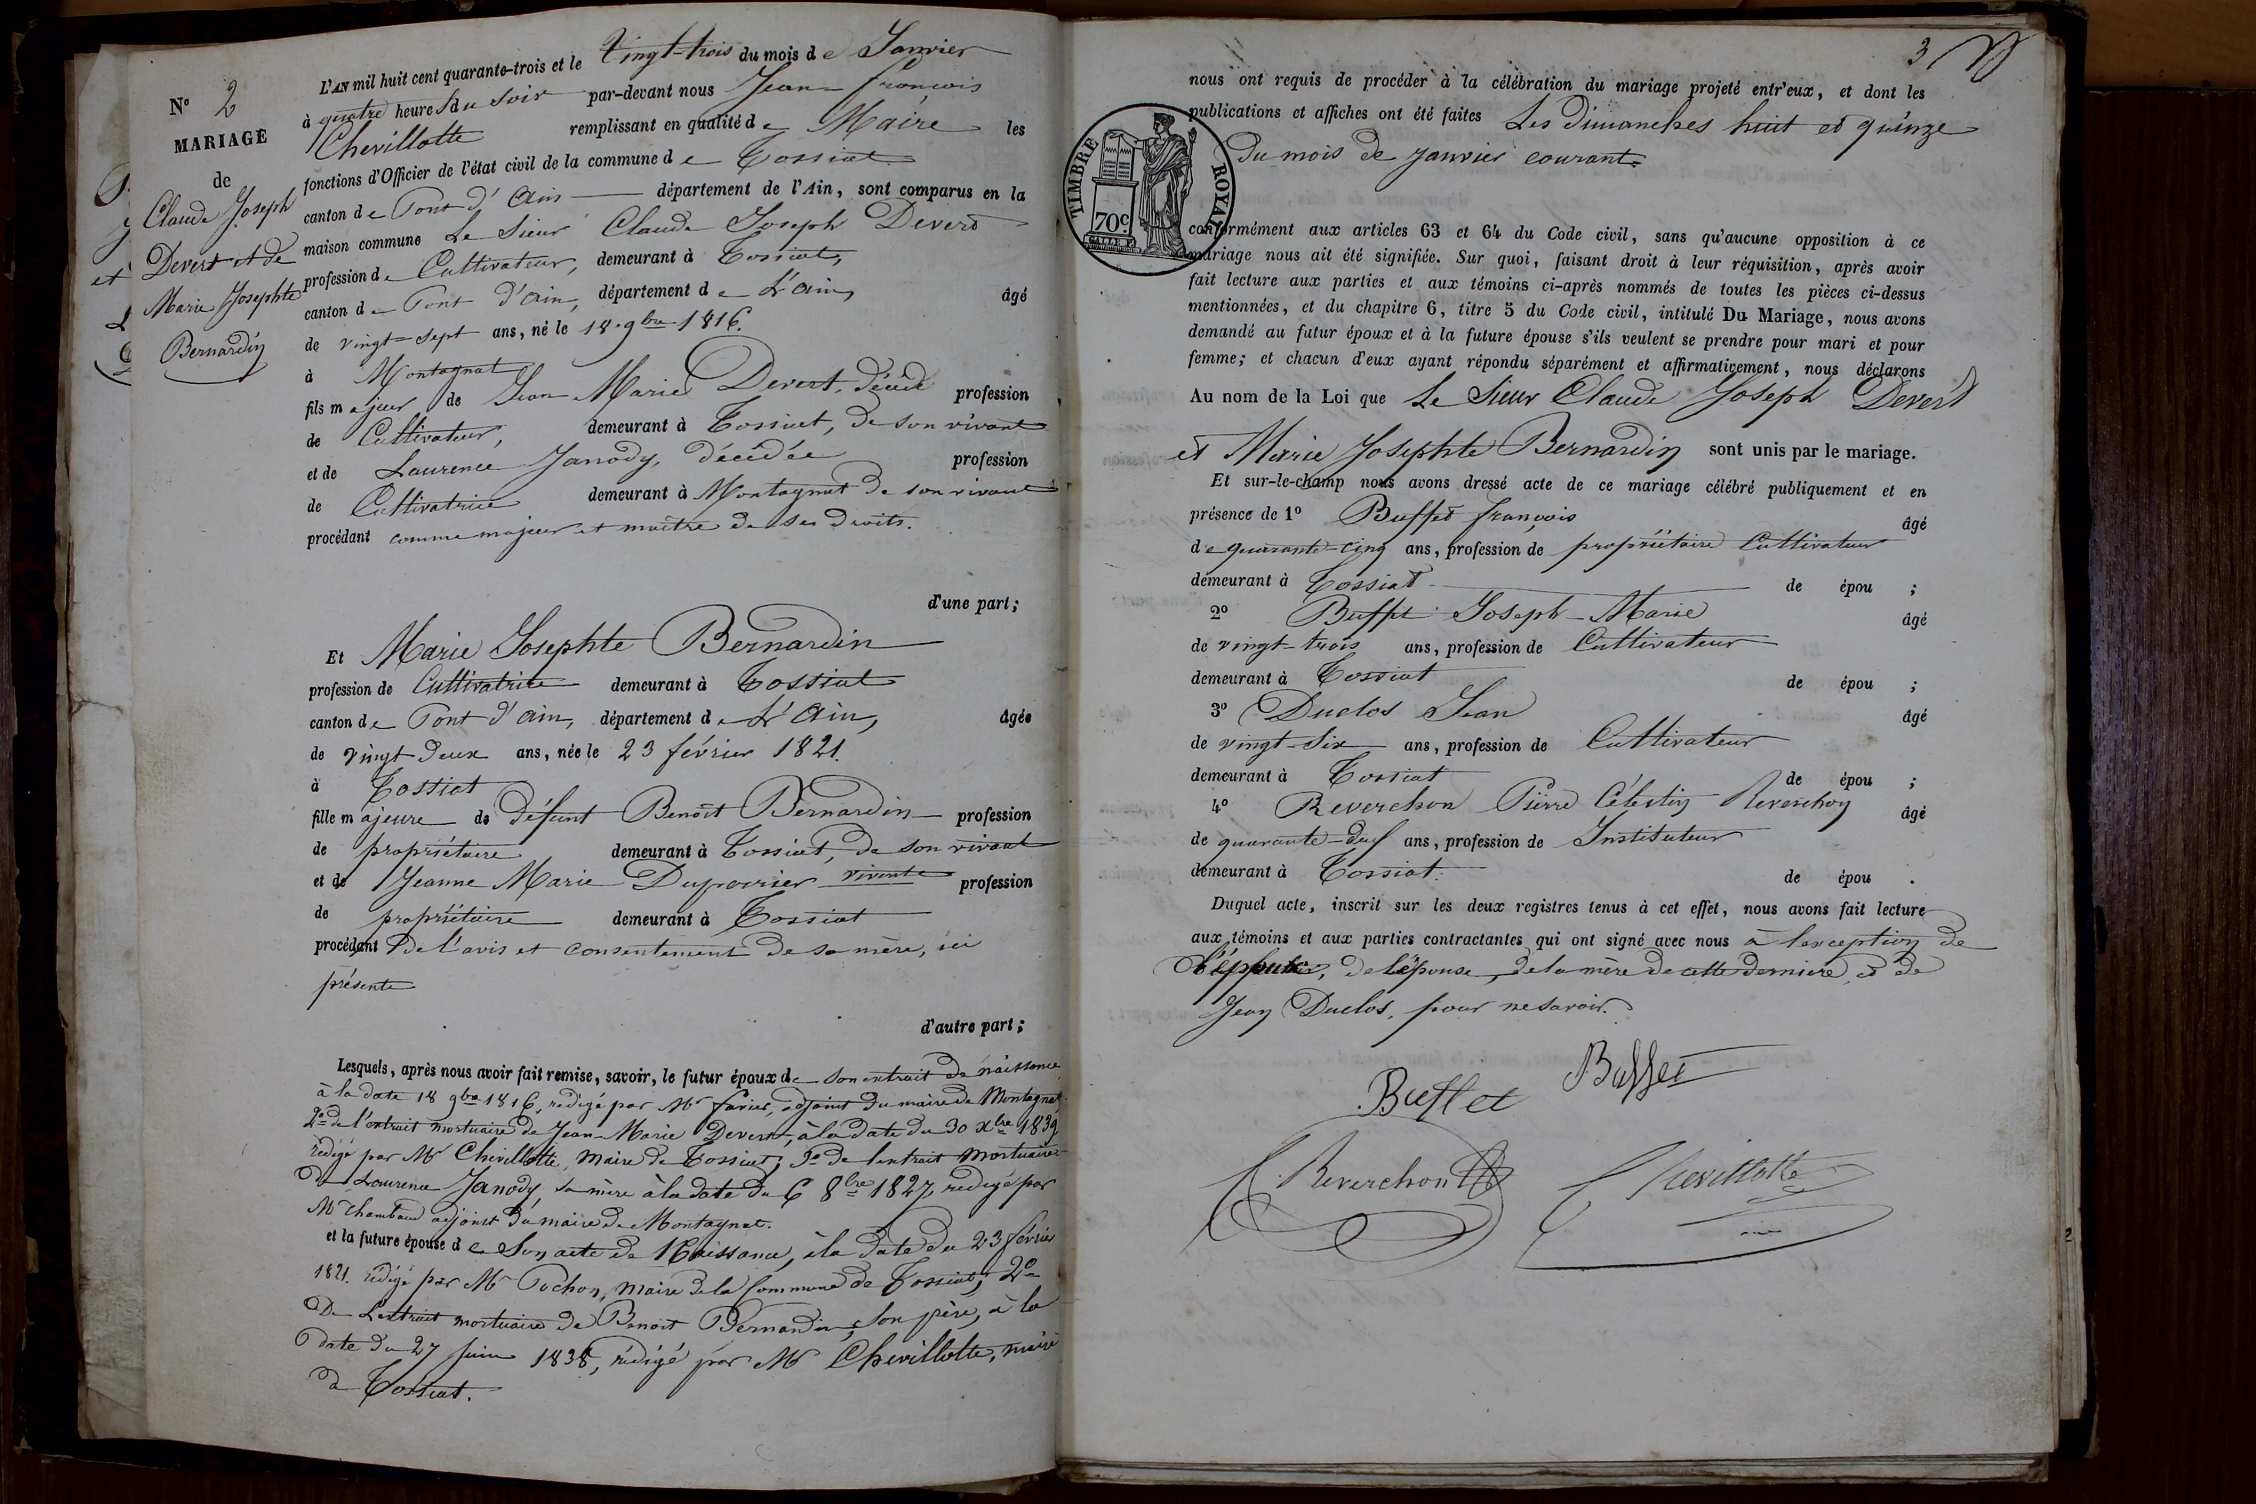 N° 2
MARIAGE
de
Claude Joseph
Devert et de
Marie Josephte
Bernardin
L'AN mil huit cent quarante-trois et le Vingt-trois du mois de Janvier
à quatre heures du soir par-devant nous Jean François
Chevillotte remplissant en qualité de Maire les
fonctions d'Officier de l'état civil de la commune de Tossiat
canton de Pont d'Ain département de l'Ain, sont comparus en la
maison commune Le Sieur Claude Joseph Devert
profession de Cultivateur, demeurant à Tossiat,
canton de Pont d'Ain, département de L'Ain, âgé
de vingt-sept ans, né le 18 9bre 1816.
à Montagnat
fils majeur de Jean Marie Devert, décédé profession
de Cultivateur, demeurant à Tossiat, de son vivant
et de Laurence Janody, décédée profession
de Cultivatrice demeurant à Montagnat de son vivant
procédant comme majeur et maître de ses droits.
d'une part;
Et Marie Josephte Bernardin
profession de Cultivatrice demeurant à Tossiat
canton de Pont d'ain, département de L'Ain, âgée
de vingt deux ans, née le 23 février 1821.
à Tossiat
fille majeure de défunt Benoît Bernardin profession
de propriétaire demeurant à Tossiat, de son vivant
et de Jeanne Marie Dupovrier vivante profession
de propriétaire demeurant à Tossiat
procédant de l'avis et consentement de sa mère, ici
présente
d'autre part;
Lesquels, après nous avoir fait remise, savoir, le futur époux de son extrait de naissance
à la date 18 9bre 1816, rédigé par Mr favier, adjoint du maire de Montagnat
2° de l'extrait mortuaire de Jean-Marie Devert à la date du 30 Xbre 1839
rédigé par Mr Chevillotte, Maire de Tossiat; 3° de l'extrait mortuaire
de Laurence Janody, sa mère à la date du 6 8bre 1827, rédigé par
Mr Chambaud adjoint du maire de Montagnat.
et la future épouse de Son acte de Naissance, à la date du 23 février
1821. rédigé par Mr Pochon, Maire de la Commune de Tossiat; 2°
De L'extrait mortuaire de Benoit Bernardin, son père, à la
date du 27 juin 1838, rédigé par Mr Chevillotte, maire
de Tossiat.
3
nous ont requis de procéder à la célébration du mariage projeté entr'eux, et dont les
publications et affiches ont été faites Les dimanches huit et quinze
du mois de janvier courant.
TIMBRE ROYAL
70c
conformément aux articles 63 et 64 du Code civil, sans qu'aucune opposition à ce
mariage nous ait été signifiée. Sur quoi, faisant droit à leur réquisition, après avoir
fait lecture aux parties et aux témoins ci-après nommés de toutes les pièces ci-dessus
mentionnées, et du chapitre 6, titre 5 du Code civil, intitulé Du Mariage, nous avons
demandé au futur époux et à la future épouse s'ils veulent se prendre pour mari et pour
femme; et chacun d'eux ayant répondu séparément et affirmativement, nous déclarons
Au nom de la Loi que Le Sieur Claude Joseph Devert
et Marie Josephte Bernardin sont unis par le mariage.
Et sur-le-champ nous avons dressé acte de ce mariage célébré publiquement et en
présence de 1° Buffet françois âgé
de quarante-cinq ans, profession de propriétaire Cultivateur
demeurant à Tossiat de épou ;
2° Buffet Joseph-Marie âgé
de vingt-trois ans, profession de Cultivateur
demeurant à Tossiat de épou ;
3° Duclos Jean âgé
de vingt-six ans, profession de Cultivateur
demeurant à Tossiat de épou ;
4° Reverchon Pierre Célestin Reverchon âgé
de quarante-deux ans, profession de Instituteur
demeurant à Tossiat. de épou .
Duquel acte, inscrit sur les deux registres tenus à cet effet, nous avons fait lecture
aux témoins et aux parties contractantes qui ont signé avec nous à l'exception de
de l'épouse, de la mère de cette dernière, et de
Jean Duclos, pour ne savoir.
Buffet
Buffet
Reverchon
Chevillotte